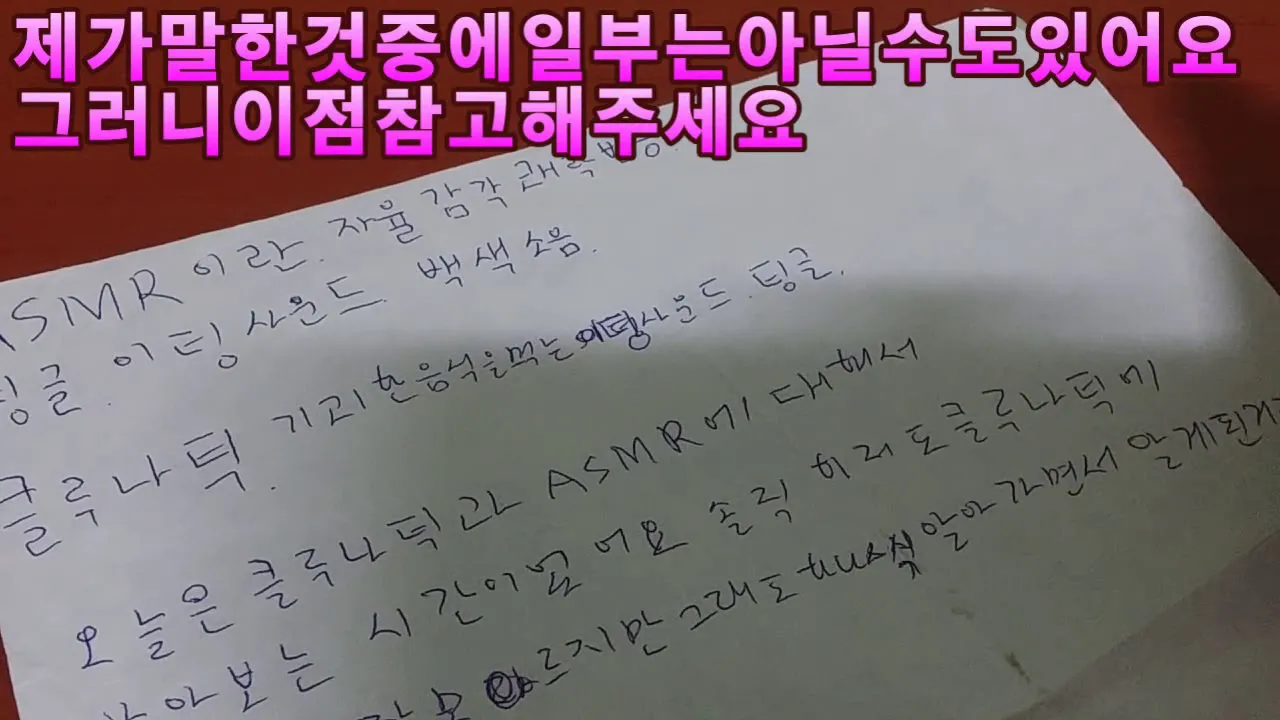 제가말한것중에일부는아닐수도있어요
그러니이점참고해주세요
ASMR 이란. 자율 감각 쾌락
팅글. 이팅 사운드. 백색 소음.
클루나틱. 기괴한 음식을 먹는 이팅사운드. 팅글.
오늘은 클루나틱과 ASMR에 대해서
알아보는 시간이었어요 솔직히 저도 클루나틱에
모르지만 그래도 해석 알아가면서 알게된거